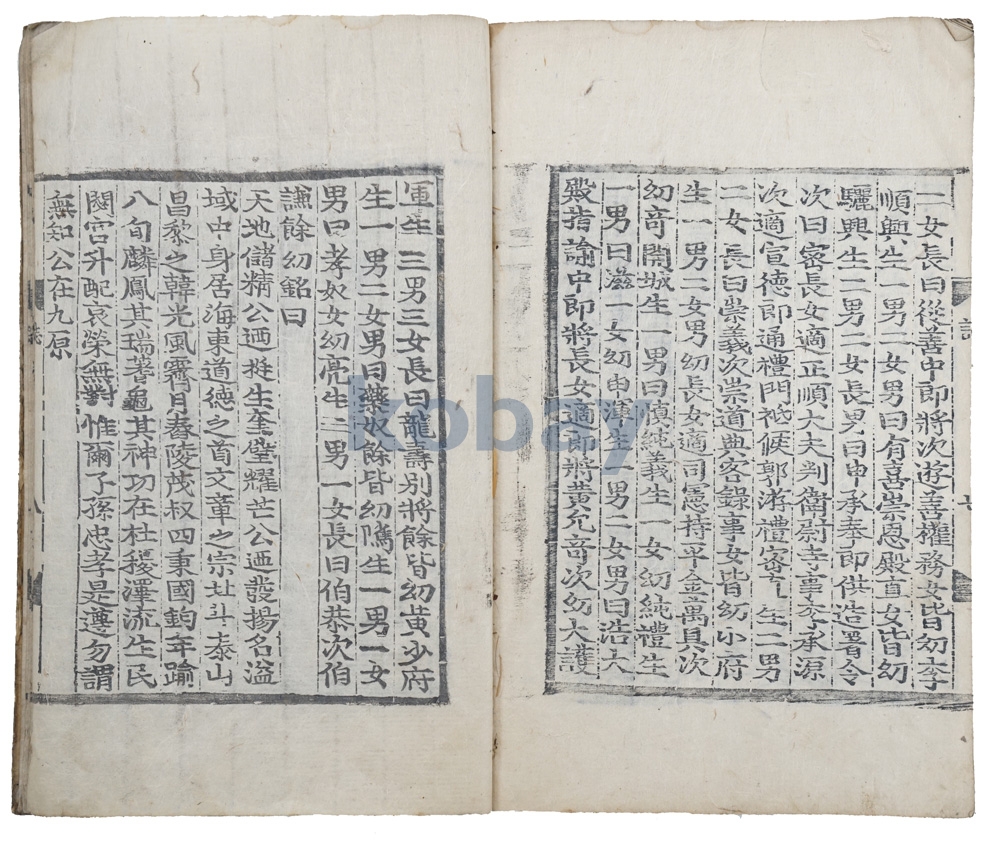 誌
七
二女長曰從善中即將次遊善權務女皆幼李
順興生一男二女男曰有喜崇恩殿直女皆幼
驪興生二男二女長男曰申承奉郎供造署令
次曰密長女適正順大夫判衛尉寺事李承源
次適宣德郎通禮門祗候郭游禮密直生二男
二女長曰崇義次崇道典客錄事女皆幼小府
生一男二女男幼長女適司憲持平金萬具次
幼奇開城生一男曰愼純義生一女幼純禮生
一男曰滋一女幼由渾生二男二女男曰浩大
殿指諭中郎將長女適郎將黃允奇次幼大護
軍生三男三女長曰龍壽別將餘皆幼黃少府
生一男二女男曰藥奴餘皆幼隲生一男一女
男曰孝奴女幼亮生二男一女長曰伯恭次伯
謙餘幼銘曰
天地儲精公迺挺生奎璧耀芒公迺發揚名溢
域中身居海東道德之首文章之宗北斗泰山
昌黎之韓光風霽月舂陵茂叔四秉國鈞年踰
八旬麟鳳其瑞蓍龜其神功在社稷澤流生民
閟宮升配哀榮無對惟爾子孫忠孝是遵勿謂
無知公在九原
誌
八
kobay